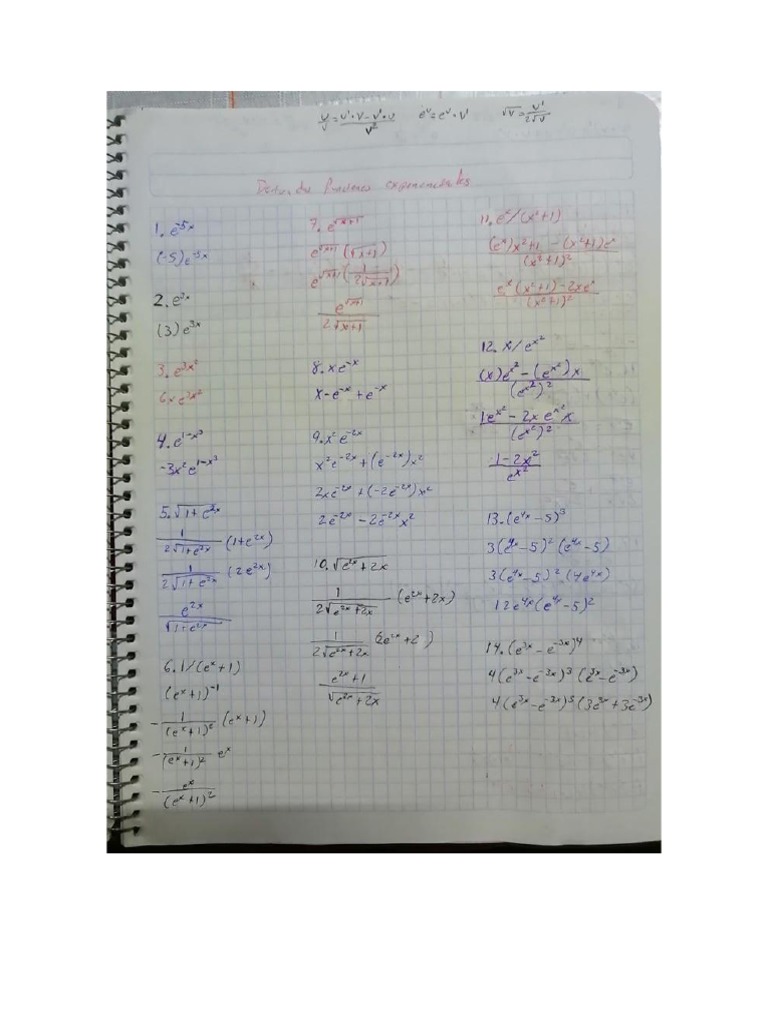 u/v = u'·v - v'·u / v²   e^v = e^v · v'   √v = v'/2√v
exponenciales
1. e^-5x
(-5)e^-5x
2. e^3x
(3)e^3x
3. e^3x²
6xe^3x²
4. e^1-x³
-3x²e^1-x³
5. √1+e^2x
1/2√1+e^2x (1+e^2x)
1/2√1+e^2x (2e^2x)
e^2x/√1+e^2x
6. 1/(e^x+1)
(e^x+1)^-1
-1/(e^x+1)² (e^x+1)
-1/(e^x+1)² e^x
-e^x/(e^x+1)²
7. e^√x+1
e^√x+1 (√x+1)
e^√x+1 (1/2√x+1)
e^√x+1/2√x+1
8. xe^-x
x-e^-x+e^-x
9. x²e^-2x
x²e^-2x+(e^-2x)x²
2xe^-2x+(-2e^-2x)x²
2e^-2x-2e^-2x x²
10. √e^2x+2x
1/2√e^2x+2x (e^2x+2x)
1/2√e^2x+2x (2e^2x+2)
e^2x+1/√e^2x+2x
11. e^x/(x²+1)
(e^x)x²+1-(x²+1)e^x/(x²+1)²
e^x(x²+1)-2xe^x/(x²+1)²
12. x/e^x²
(x)e^x²-(e^x²)x/(e^x²)²
1e^x²-2xe^x²x/(e^x²)²
1-2x²/e^x²
13. (e^4x-5)³
3(e^4x-5)²(e^4x-5)
3(e^4x-5)²·(4e^4x)
12e^4x(e^4x-5)²
14. (e^3x-e^-3x)^4
4(e^3x-e^-3x)³(e^3x-e^-3x)
4(e^3x-e^-3x)³(3e^3x+3e^-3x)